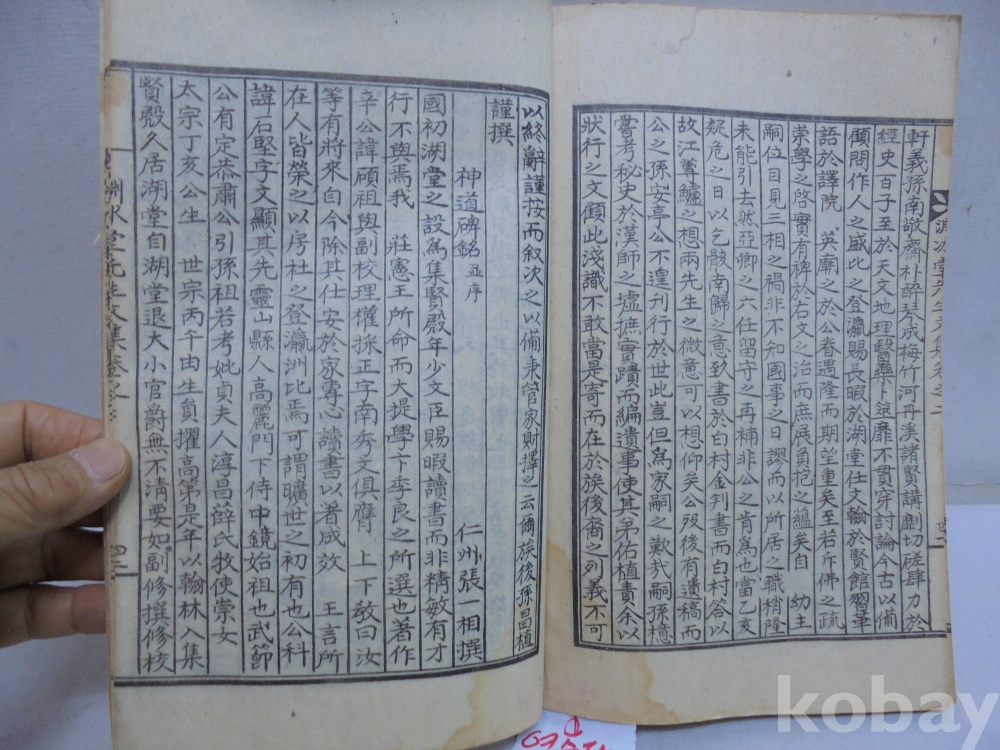 軒義孫南敬齋朴醉琴成梅竹河丹溪諸賢講劘切磋肆力於
經史百子至於天文地理醫藥卜筮靡不貫穿討論今古以備
顧問作人之盛此之登瀛賜長暇於湖堂仕文翰於賢館習華
語於譯院 英廟之於公眷遇隆而期望重矣至若斥佛之疏
崇學之啓實有裨於右文之治而庶展負抱之蘊矣自 幼主
嗣位目見三相之禍非不知國事之日謬而以所居之職稍隆
未能引去然亞卿之六任留守之再補非公之肯爲也當乙亥
疑危之日以乞骸南歸之意致書於白村金判書而白村答以
故江蓴鱸之想兩先生之微意可以想仰矣公歿後有遺稿而
公之孫安亭公不遑刊行於世此豈但爲家嗣之歎哉嗣孫檍
嘗考秘史於漢師之墟摭實蹟而編遺事使其弟佑植責余以
狀行之文顧此淺識不敢當是寄而在於族後裔之列義不可
淵氷堂先生文集卷之二
四二
以終辭謹按而叙次之以備秉管家財擇之云爾族後孫昌植
謹撰
神道碑銘 並序 仁州張一相撰
國初湖堂之設爲集賢殿年少文臣賜暇讀書而非精敏有才
行不與焉我 莊憲王所命而大提學卞季良之所選也著作
辛公諱碩祖與副校理權採正字南秀文俱膺 上下敎曰汝
等有將來自今除其仕安於家專心讀書以著成效 王言所
在人皆榮之以房社之登瀛洲比焉可謂曠世之初有也公科
諱石堅字文顯其先靈山縣人高麗門下侍中鏡始祖也武節
公有定恭肅公引孫祖若考妣貞夫人淳昌薛氏牧使崇女
太宗丁亥公生 世宗丙午由生員擢高第是年以翰林入集
賢殿久居湖堂自湖堂退大小官爵無不淸要如副修撰修校
淵氷堂先生文集卷之二
四三
kobay